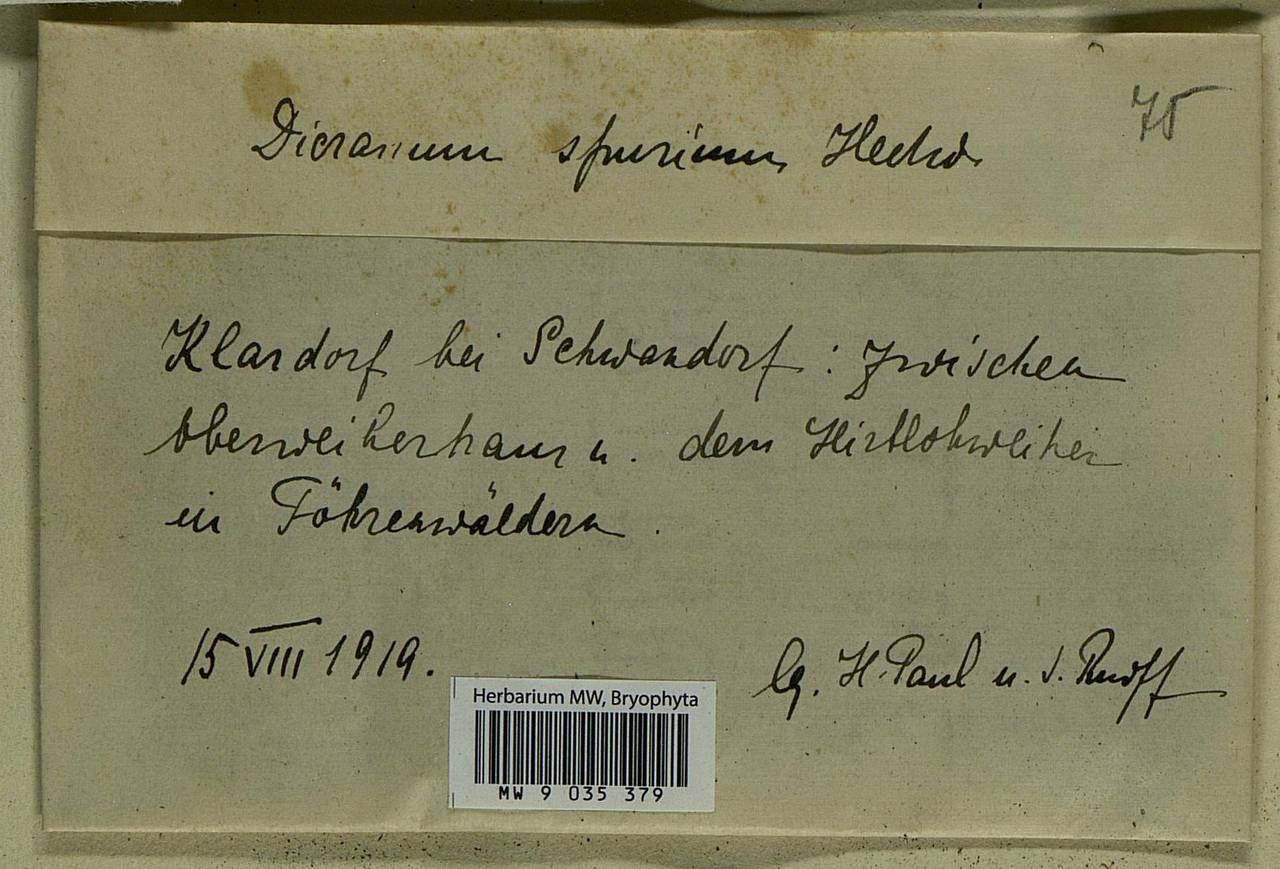 75
Dicranum spurium Hedw.
Klardorf bei Schwandorf: zwischen
Oberweiherhaus u. dem Hirtlohweiher
in Föhrenwäldern.
15 VIII 1919.
lg. H. Paul u. S. Ruoff
Herbarium MW, Bryophyta
MW 9 035 379